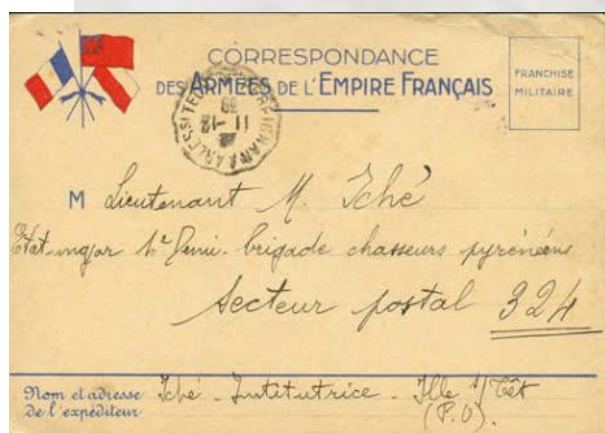 CORRESPONDANCE
DES ARMÉES DE L'EMPIRE FRANÇAIS
FRANCHISE
MILITAIRE
11-12
39
M Lieutenant M. Iché
Etat-major 1e Demi-brigade chasseurs pyrénéens
Secteur postal 324
Nom et adresse
de l'expéditeur
Iché - Institutrice - Ille s/ Têt
(P.O).